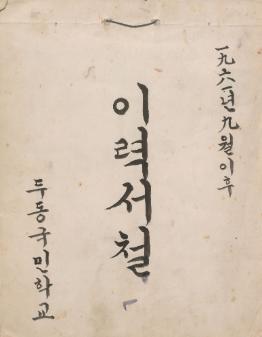 一九六一년 九월 이후
이력서철
두동국민학교